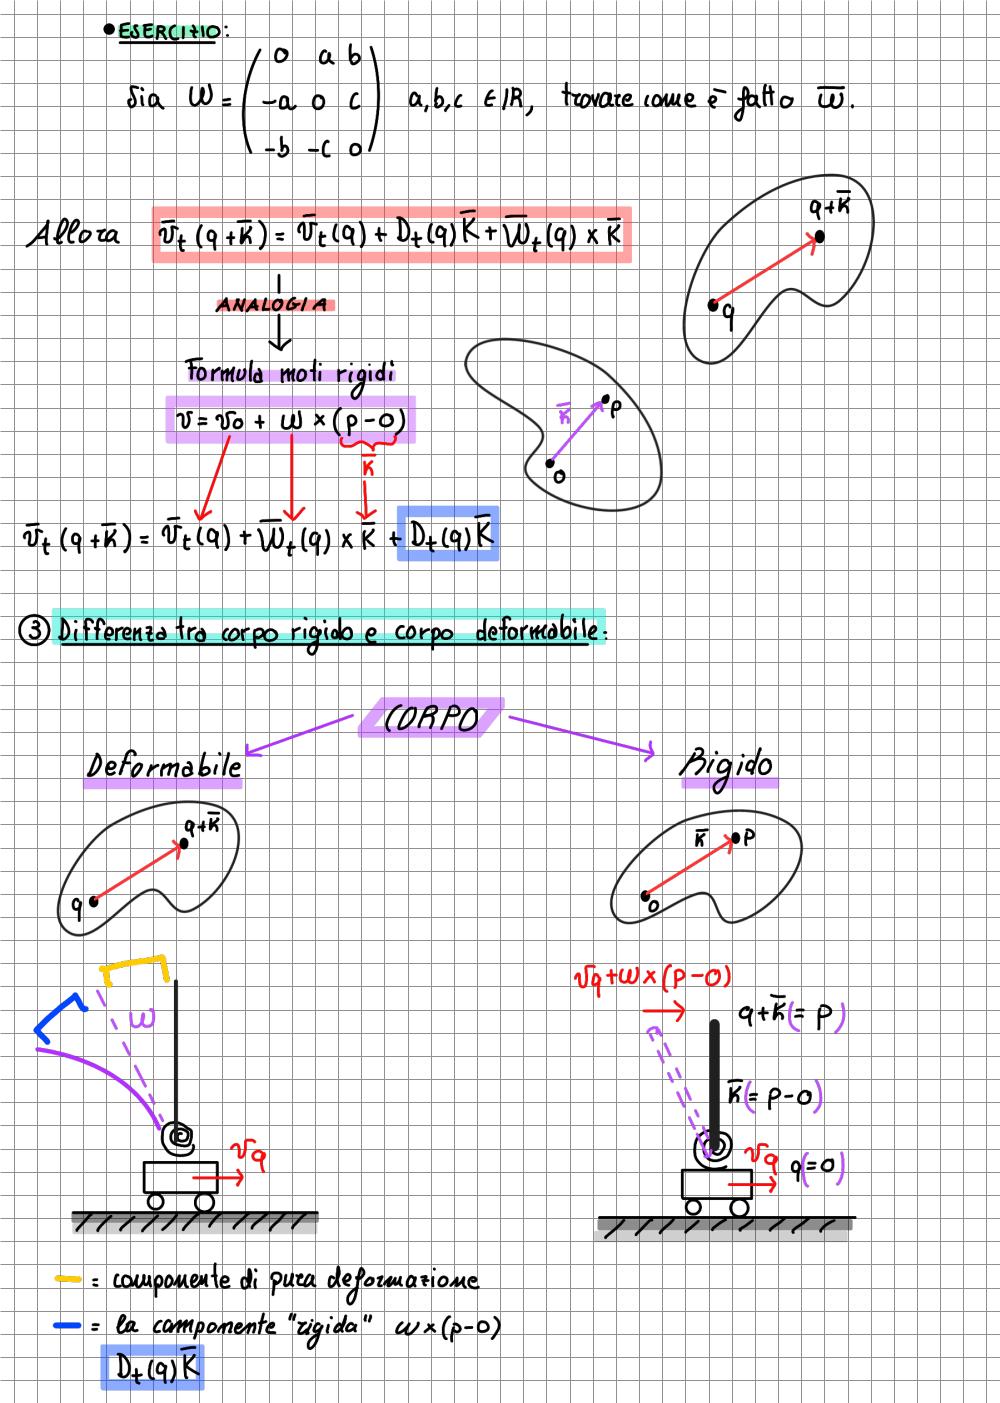 • ESERCIZIO:
Sia W = ( 0 a b
-a 0 c
-b -c 0 ) a,b,c ∈ IR, trovare come è fatto w̅.
q+k̅
Allora v̅ₜ(q+k̅) = v̅ₜ(q) + Dₜ(q)K̅ + W̅ₜ(q) × k̅
q
ANALOGIA
Formula moti rigidi
v = v₀ + w × (p-0)
k̅
p
0
k̅
v̅ₜ(q+k̅) = v̅ₜ(q) + W̅ₜ(q) × k̅ + Dₜ(q)K̅
③ Differenza tra corpo rigido e corpo deformabile:
CORPO
Deformabile
Rigido
q+k̅
q
k̅ p
0
w
vq
vq+w×(p-0)
q+k̅(= p)
k̅(= p-0)
vq
q(=0)
= componente di pura deformazione
= la componente "rigida" w×(p-0)
Dₜ(q)K̅